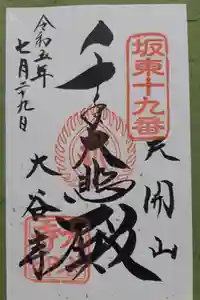 坂東十九番
天開山
千手大悲殿
大谷寺
令和五年
七月二十九日